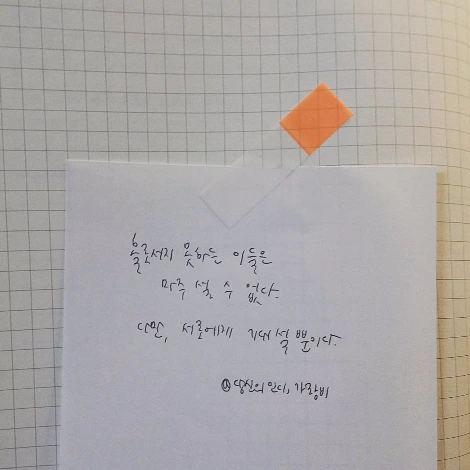 홀로서지 못하는 이들은
마주 설 수 없다.
다만, 서로에게 기대설 뿐이다.
당신의 인디, 가랑비